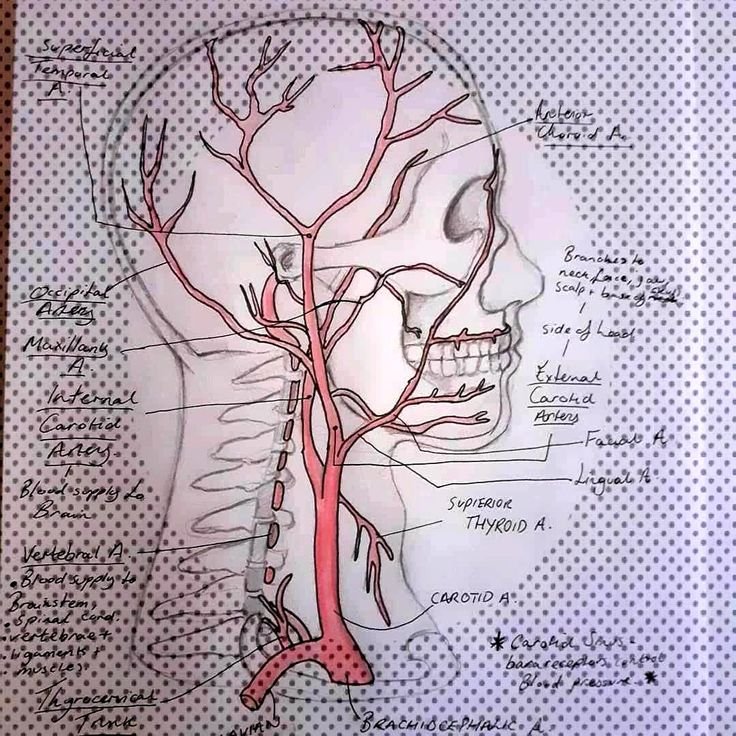 Superficial
Temporal
A
Anterior
Choroid A.
Branches to
neck, face, jaw,
scalp + base of
side of head
External
Carotid
Artery
Facial A
Lingual A.
Occipital
Artery
Maxillary
A.
Internal
Carotid
Artery.
Blood supply to
Brain
Vertebral A.
• Blood supply to
Brainstem,
• Spinal cord.
• vertebrae +
• ligaments +
• muscles.
Thyrocervical
Trunk
SUPIERIOR
THYROID A.
CAROTID A.
* Carotid Sinus -
baroreceptors control
Blood pressure *
BRACHIOCEPHALIC A.
AVIAN